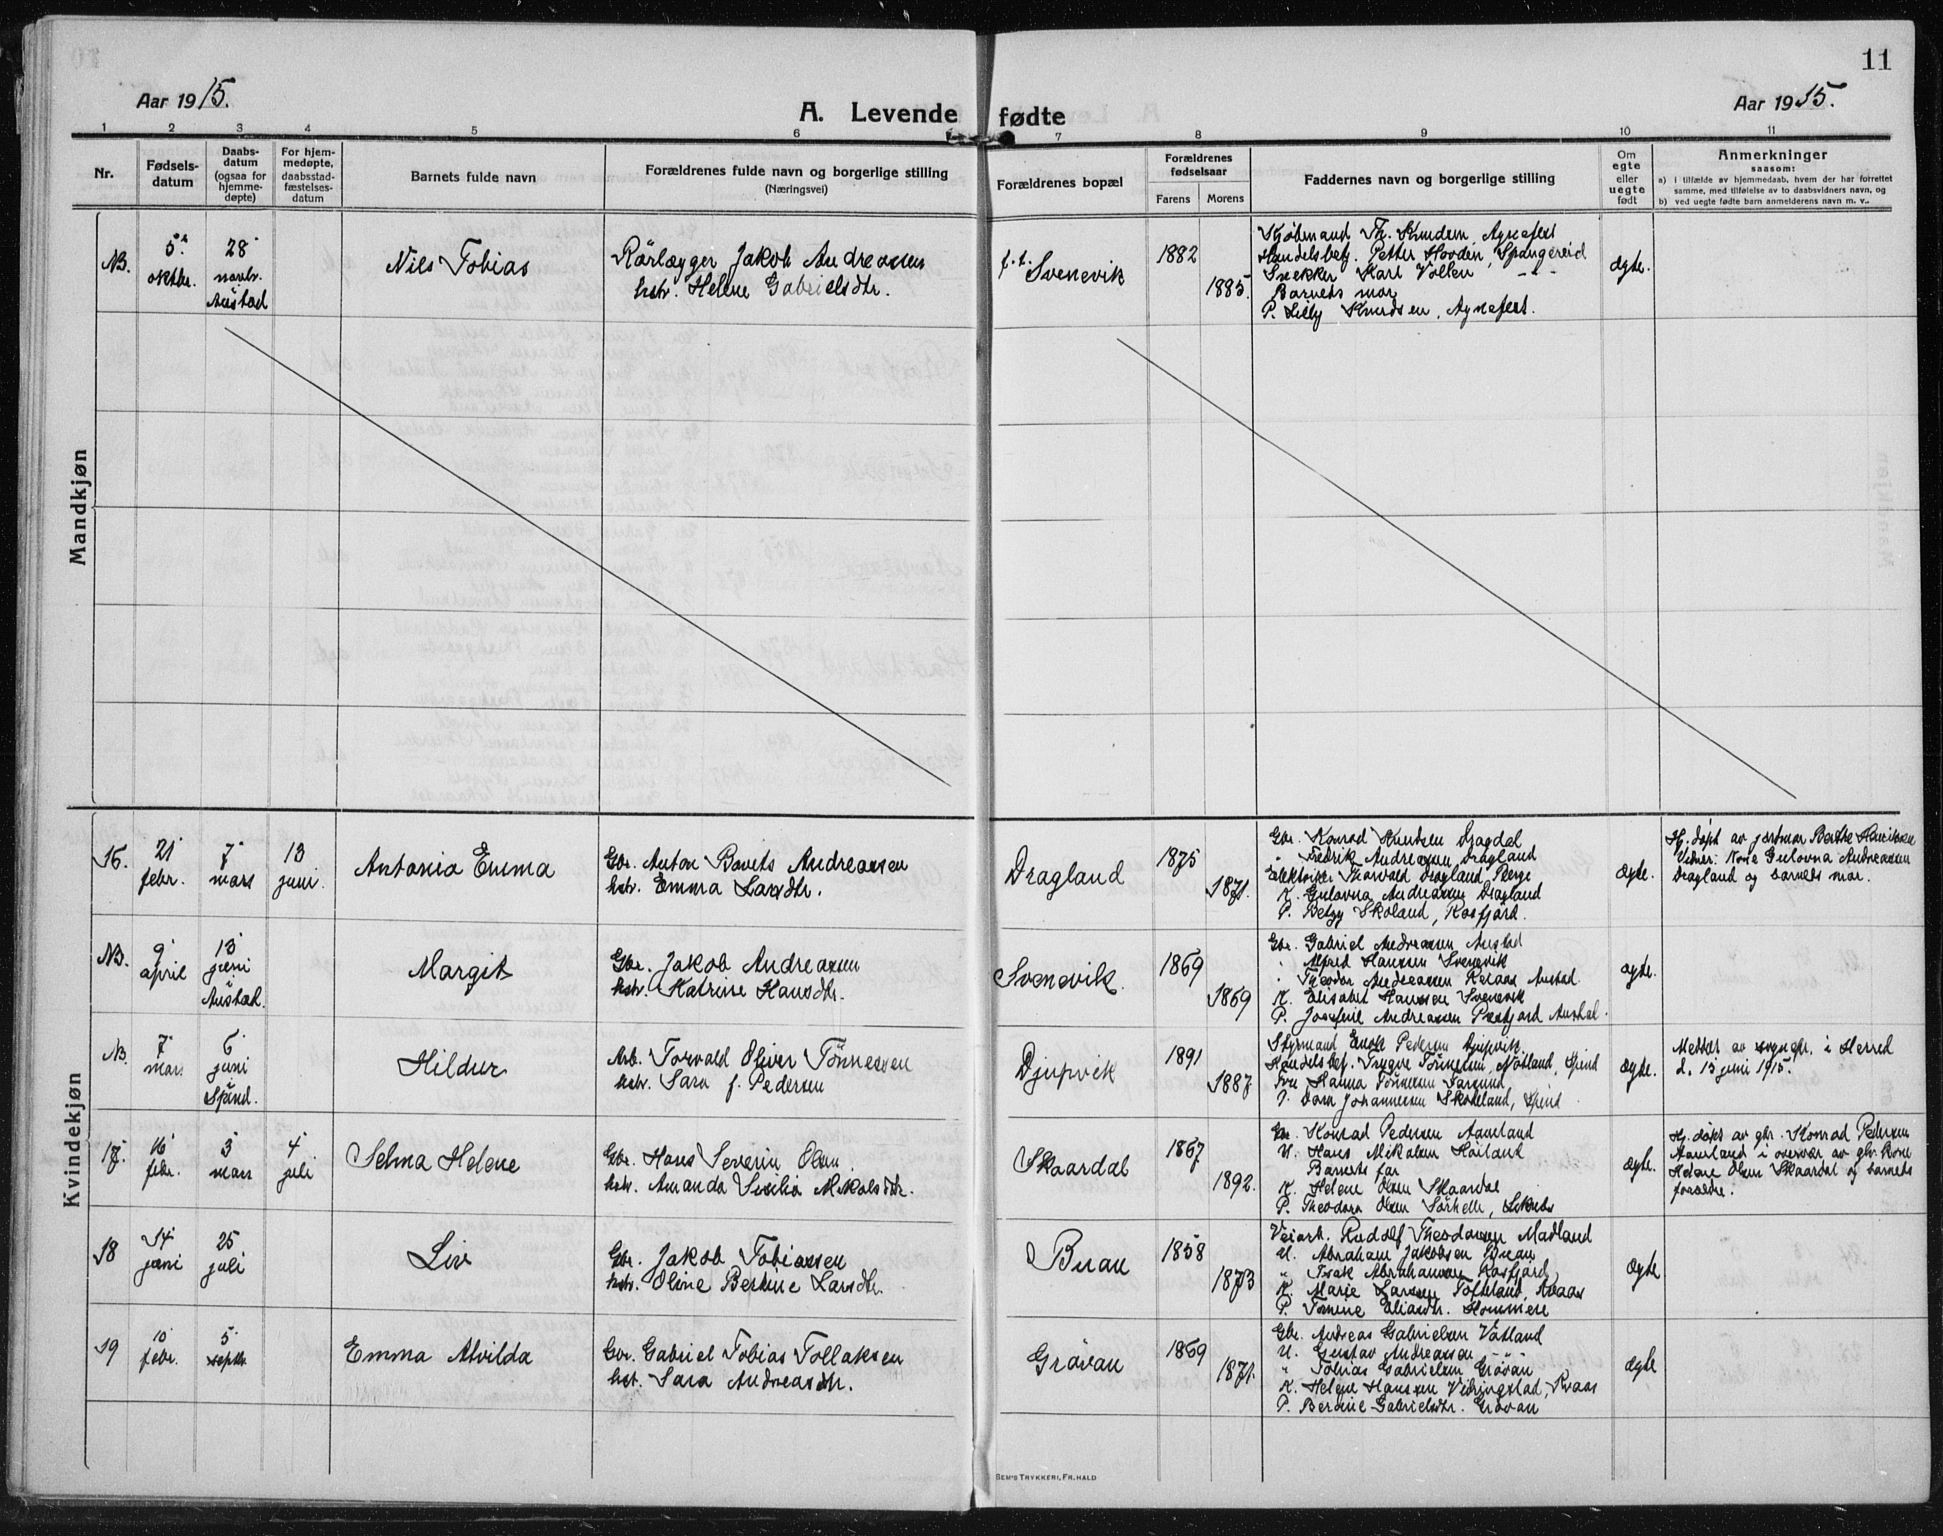 11
Aar 1915.
A. Levende fødte
Aar 1915.
1 2 3 4 5 6 7 8 9 10 11
Nr.
Fødsels-
datum
Daabs-
datum
(ogsaa for
hjemme-
døpte)
For hjem-
medøpte,
daabsstad-
fæstelses-
datum
Barnets fulde navn
Forældrenes fulde navn og borgerlige stilling
(Næringsvei)
Forældrenes bopæl
Forældrenes
fødselsaar
Farens Morens
Faddernes navn og borgerlige stilling
Om
egte
eller
uegte
født
Anmerkninger
saasom:
a) i tilfælde av hjemmedaab, hvem der har forrettet
samme, med tilføielse av to daabsvidners navn, og
b) ved uegte fødte barn anmelderens navn m. v..
Mandkjøn
NB.
5te
oktbr.
28
novbr.
Austad
Nils Tobias
Rörlægger Jakob Andreassen
hstr. Helene Gabrielsdtr.
f. t. Svenevik
1882
1885.
Kjöbmand Th. Knudsen, Agnefest
Handelsbetj. Petter Hovden, Spangereid
Snekker Karl Vollen -"-
Barnets mor
P. Lilly Knudsen, Agnefest.
ægte.
Kvindekjøn
16.
21
febr.
7
mars
13
juni
Antonia Emma
Gbr. Anton Bovits Andreassen
hstr. Emma Larsdtr.
Dragland
1875
1871.
Gbr. Konrad Knutsen Dragdal
" Fredrik Andreassen Dragland
Elektriker Thorvald Dragland, Berge
K. Gulovna Andreassen Dragland
P. Betzy Skoland, Rosfjord.
ægte.
Hj. döpt av jordmor Berthe Henriksen
Vidner: Kone Gulovna Andreassen
Dragland og barnets mor.
NB.
9
april
13
juni
Austad.
Margit
Gbr. Jakob Andreassen
hstr. Katrine Hansdtr.
Svenevik.
1869
1869
Gbr. Gabriel Andreassen Austad
" Alfred Hansen Svenevik
" Theodor Andreassen Refaas Austad.
K. Elisabet Hansen Svenevik
P. Josefine Andreassen Rosfjord Austad.
ægte.
NB.
7
mars
6
juni
Spind.
Hildur
Arb. Torvald Oliver Tönnessen
hstr. Sara f. Pedersen
Djupvik
1891
1887
Styrmand Enok Pedersen Djupvik
Handelsbetj. Trygve Tönnessen, Nötland, Spind
Fru Hanna Tönnessen Farsund
P. Dora Johannessen Skoland, Spind
ægte.
Meddelt av sogneprest i Herred
d. 13 juni 1915.
17.
16
febr.
3
mars
4
juli
Selma Helene
Gbr. Hans Severin Olsen
hstr. Amanda Sesilia Mikalsdtr.
Skaardal
1867
1892.
Gbr. Konrad Pedersen Aamland
U. Hans Mikalsen Höiland
Barnets far
K. Helene Olsen Skaardal
P. Theodora Olsen Sörhelle, Liknes
ægte.
Hj. döpt av gbr. Konrad Pedersen
Aamland i overvær av gbr. kone
Helene Olsen Skaardal og barnets
forældre.
18
14
juni
25
juli
Liv
Gbr. Jakob Tobiassen
hstr. Oline Bertine Larsdtr.
Buan
1858
1873
Veiarb. Rudolf Theodorsen Madland
U. Abraham Jakobsen Buan
" Isak Abrahamsen Rosfjord
K. Marie Larsen Tofteland, Kvaas
P. Tomine Eliasdtr. Hommen
ægte
19
10
febr.
5
septbr.
Emma Alvilda
Gbr. Gabriel Tobias Tollaksen
hstr. Sara Andreasdtr.
Grövan
1869
1871.
Gbr. Andreas Gabrielsen Vatland
U. Gustav Andreassen -"-
" Tobias Gabrielsen Grövan
K. Helene Hansen Vidringstad, Kvaas
P. Berdine Gabrielsdtr. Grövan
ægte
SEM'S TRYKKERI, FR. HALD